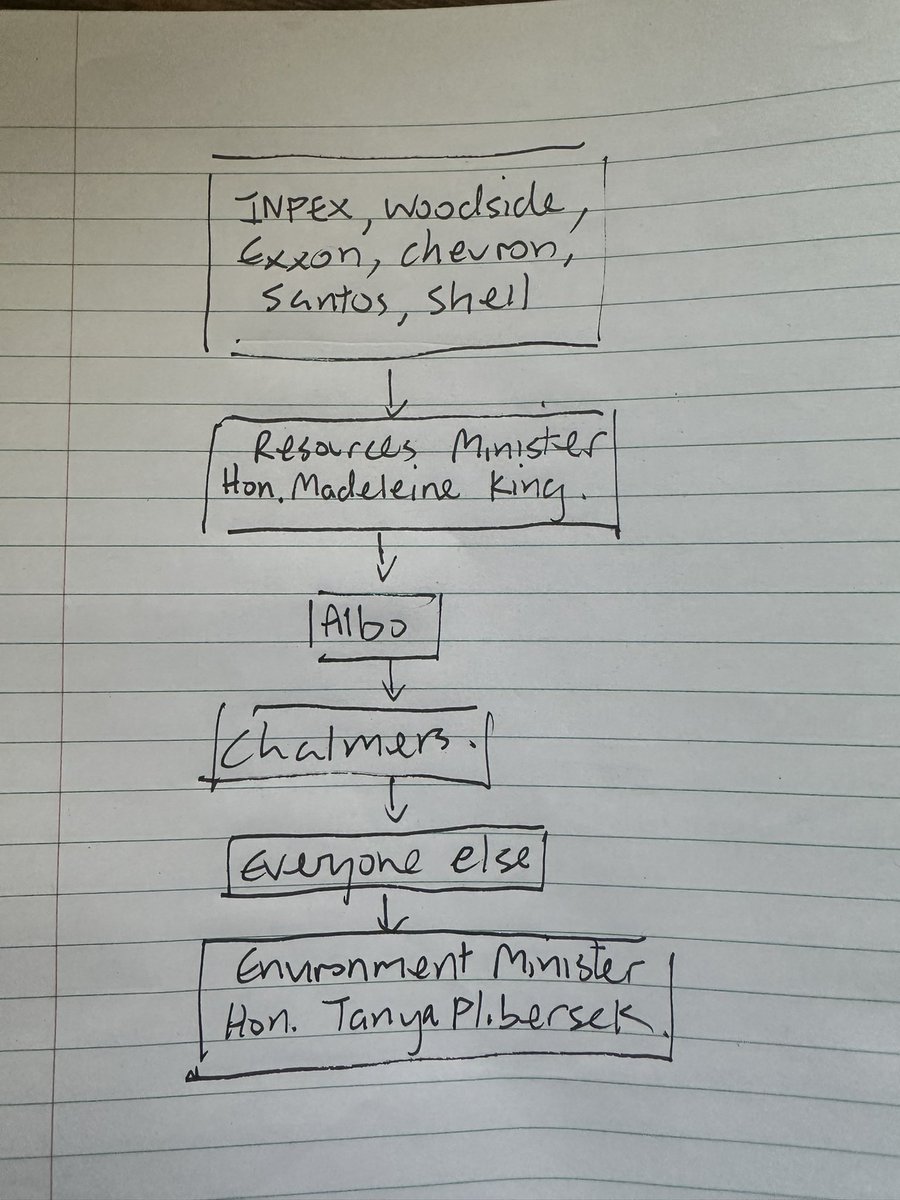 INPEX, Woodside,
Exxon, Chevron,
Santos, Shell
Resources Minister
Hon. Madeleine King.
Albo
Chalmers.
Everyone else
Environment Minister
Hon. Tanya Plibersek.